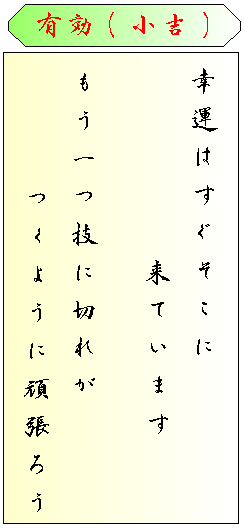 有効(小吉)
幸運はすぐそこに
来ています
もう一つ技に切れが
つくように頑張ろう